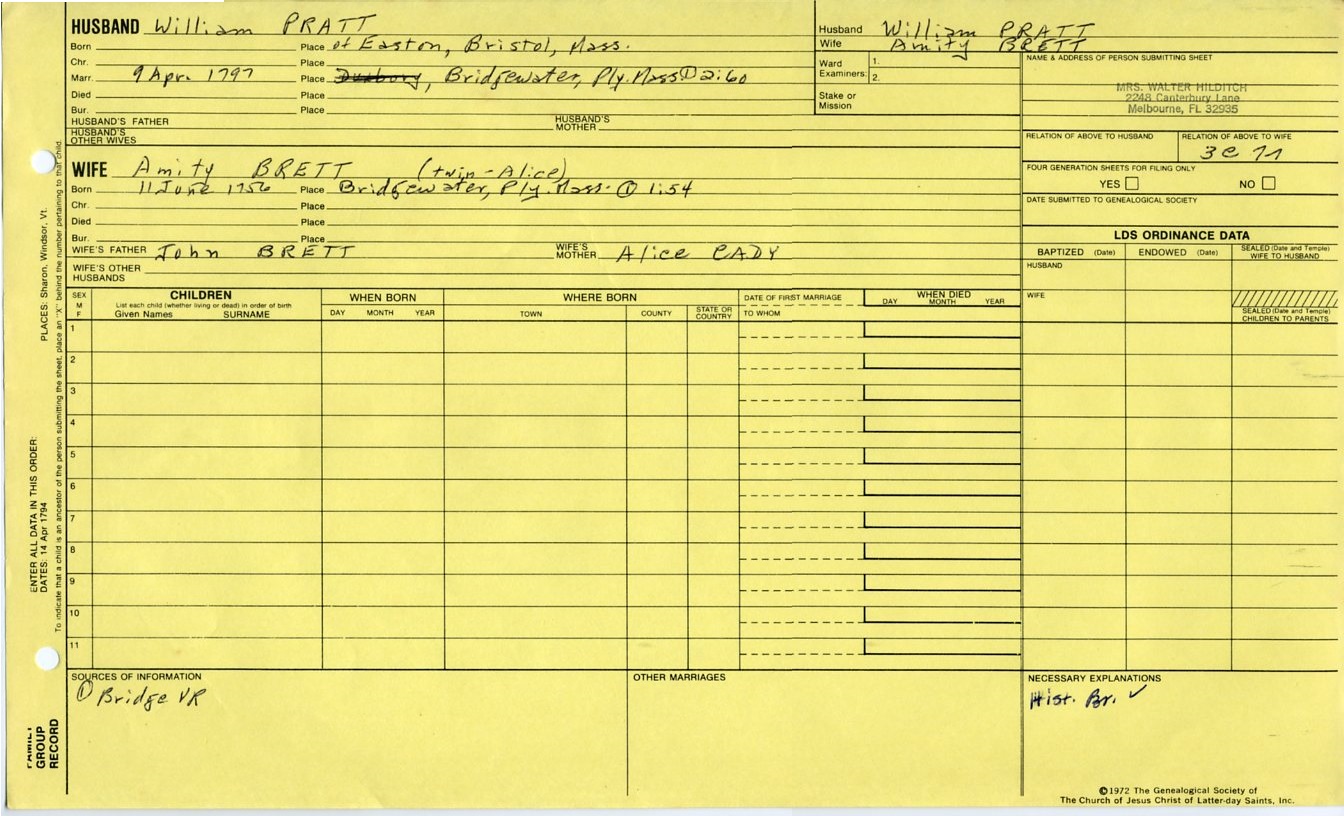 HUSBAND William PRATT
Born Place of Easton, Bristol, Mass.
Chr. Place
Marr. 9 Apr. 1797 Place Duxbury, Bridgewater, Ply. Mass ① 2:60
Died Place
Bur. Place
HUSBAND'S FATHER HUSBAND'S MOTHER
HUSBAND'S OTHER WIVES
WIFE Amity BRETT (twin - Alice)
Born 11 June 1756 Place Bridgewater, Ply. Mass. ① 1:54
Chr. Place
Died Place
Bur. Place
WIFE'S FATHER John BRETT WIFE'S MOTHER Alice CADY
WIFE'S OTHER HUSBANDS
Husband William PRATT
Wife Amity BRETT
Ward Examiners: 1.
2.
Stake or Mission
NAME & ADDRESS OF PERSON SUBMITTING SHEET
MRS. WALTER HILDITCH
2248 Canterbury Lane
Melbourne, FL 32935
RELATION OF ABOVE TO HUSBAND RELATION OF ABOVE TO WIFE
FOUR GENERATION SHEETS FOR FILING ONLY
YES NO
DATE SUBMITTED TO GENEALOGICAL SOCIETY
LDS ORDINANCE DATA
BAPTIZED (Date) ENDOWED (Date) SEALED (Date and Temple) WIFE TO HUSBAND
HUSBAND
WIFE
SEALED (Date and Temple) CHILDREN TO PARENTS
SEX M F
CHILDREN
List each child (whether living or dead) in order of birth
Given Names SURNAME
WHEN BORN
DAY MONTH YEAR
WHERE BORN
TOWN COUNTY STATE OR COUNTRY
DATE OF FIRST MARRIAGE
TO WHOM
WHEN DIED
DAY MONTH YEAR
1
2
3
4
5
6
7
8
9
10
11
SOURCES OF INFORMATION
① Bridge VR
OTHER MARRIAGES
NECESSARY EXPLANATIONS
Hist. Br. ✓
©1972 The Genealogical Society of
The Church of Jesus Christ of Latter-day Saints, Inc.
PLACES: Sharon, Windsor, Vt.
To indicate that a child is an ancestor of the person submitting the sheet, place an "X" behind the number pertaining to that child.
ENTER ALL DATA IN THIS ORDER:
DATES: 14 Apr 1794
FAMILY GROUP RECORD